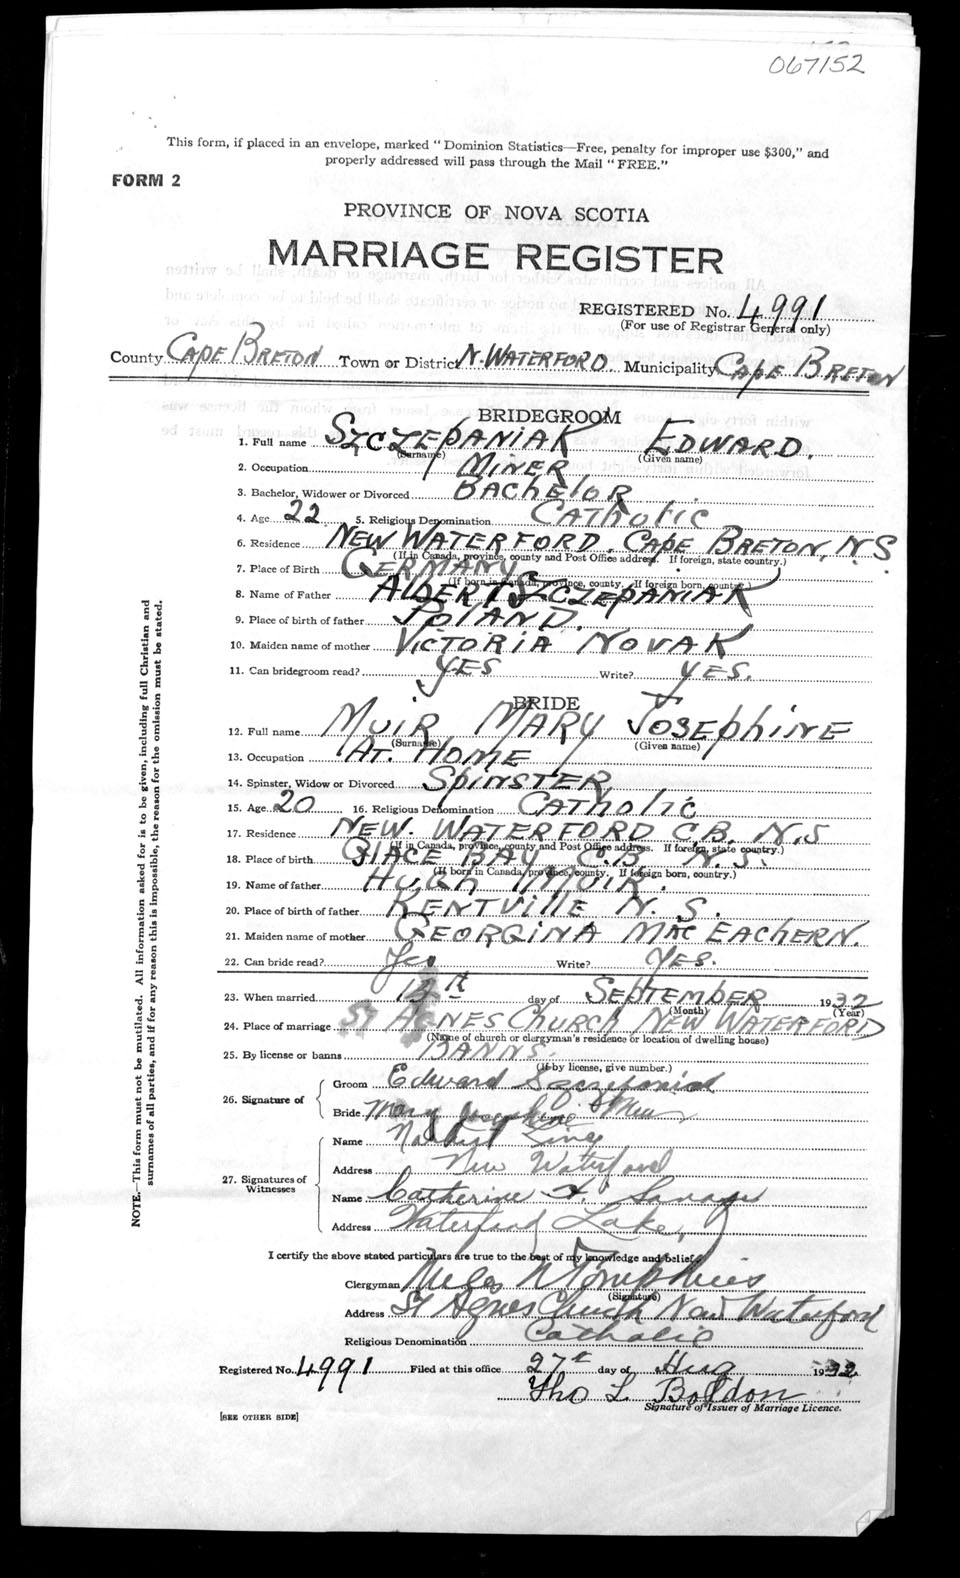 067152
This form, if placed in an envelope, marked "Dominion Statistics—Free, penalty for improper use $300," and
properly addressed will pass through the Mail "FREE."
FORM 2
PROVINCE OF NOVA SCOTIA
MARRIAGE REGISTER
REGISTERED No. 4991
(For use of Registrar General only)
County CAPE BRETON Town or District N. WATERFORD. Municipality CAPE BRETON
BRIDEGROOM
1. Full name SZCZEPANIAK EDWARD.
(Surname) (Given name)
2. Occupation MINER
3. Bachelor, Widower or Divorced BACHELOR
4. Age 22. 5. Religious Denomination CATHOLIC
6. Residence NEW WATERFORD. CAPE BRETON, N.S.
(If in Canada, province, county and Post Office address. If foreign, state country.)
7. Place of Birth GERMANY
(If born in Canada, province, county. If foreign born, country.)
8. Name of Father ALBERT SZCZEPANIAK
9. Place of birth of father POLAND.
10. Maiden name of mother VICTORIA NOVAK
11. Can bridegroom read? YES Write? YES.
BRIDE
12. Full name MUIR MARY JOSEPHINE
(Surname) (Given name)
13. Occupation AT. HOME
14. Spinster, Widow or Divorced SPINSTER
15. Age 20 16. Religious Denomination CATHOLIC
17. Residence NEW. WATERFORD C.B. N.S
(If in Canada, province, county and Post Office address. If foreign, state country.)
18. Place of birth GLACE BAY C.B. N.S.
(If born in Canada, province, county. If foreign born, country.)
19. Name of father HUGH MUIR.
20. Place of birth of father KENTVILLE N.S.
21. Maiden name of mother GEORGINA MAC EACHERN.
22. Can bride read? Yes Write? YES.
23. When married day of SEPTEMBER 1932
(Month) (Year)
24. Place of marriage St AGNES CHURCH NEW WATERFORD
(Name of church or clergyman's residence or location of dwelling house)
25. By license or banns BANNS.
(If by license, give number.)
26. Signature of
Groom Edward Szczepaniak
Bride Mary Josephine Muir
27. Signatures of Witnesses
Name
Address New Waterford
Name Catherine Savage
Address Waterford Lake,
I certify the above stated particulars are true to the best of my knowledge and belief.
Clergyman Tompkins
(Signature)
Address St Agnes Church New Waterford
Religious Denomination Catholic
Registered No. 4991 Filed at this office 27th day of Aug 1932
Tho L Boldon
Signature of Issuer of Marriage Licence.
[SEE OTHER SIDE]
NOTE.—This form must not be mutilated. All information asked for is to be given, including full Christian and
surnames of all parties, and if for any reason this is impossible, the reason for the omission must be stated.